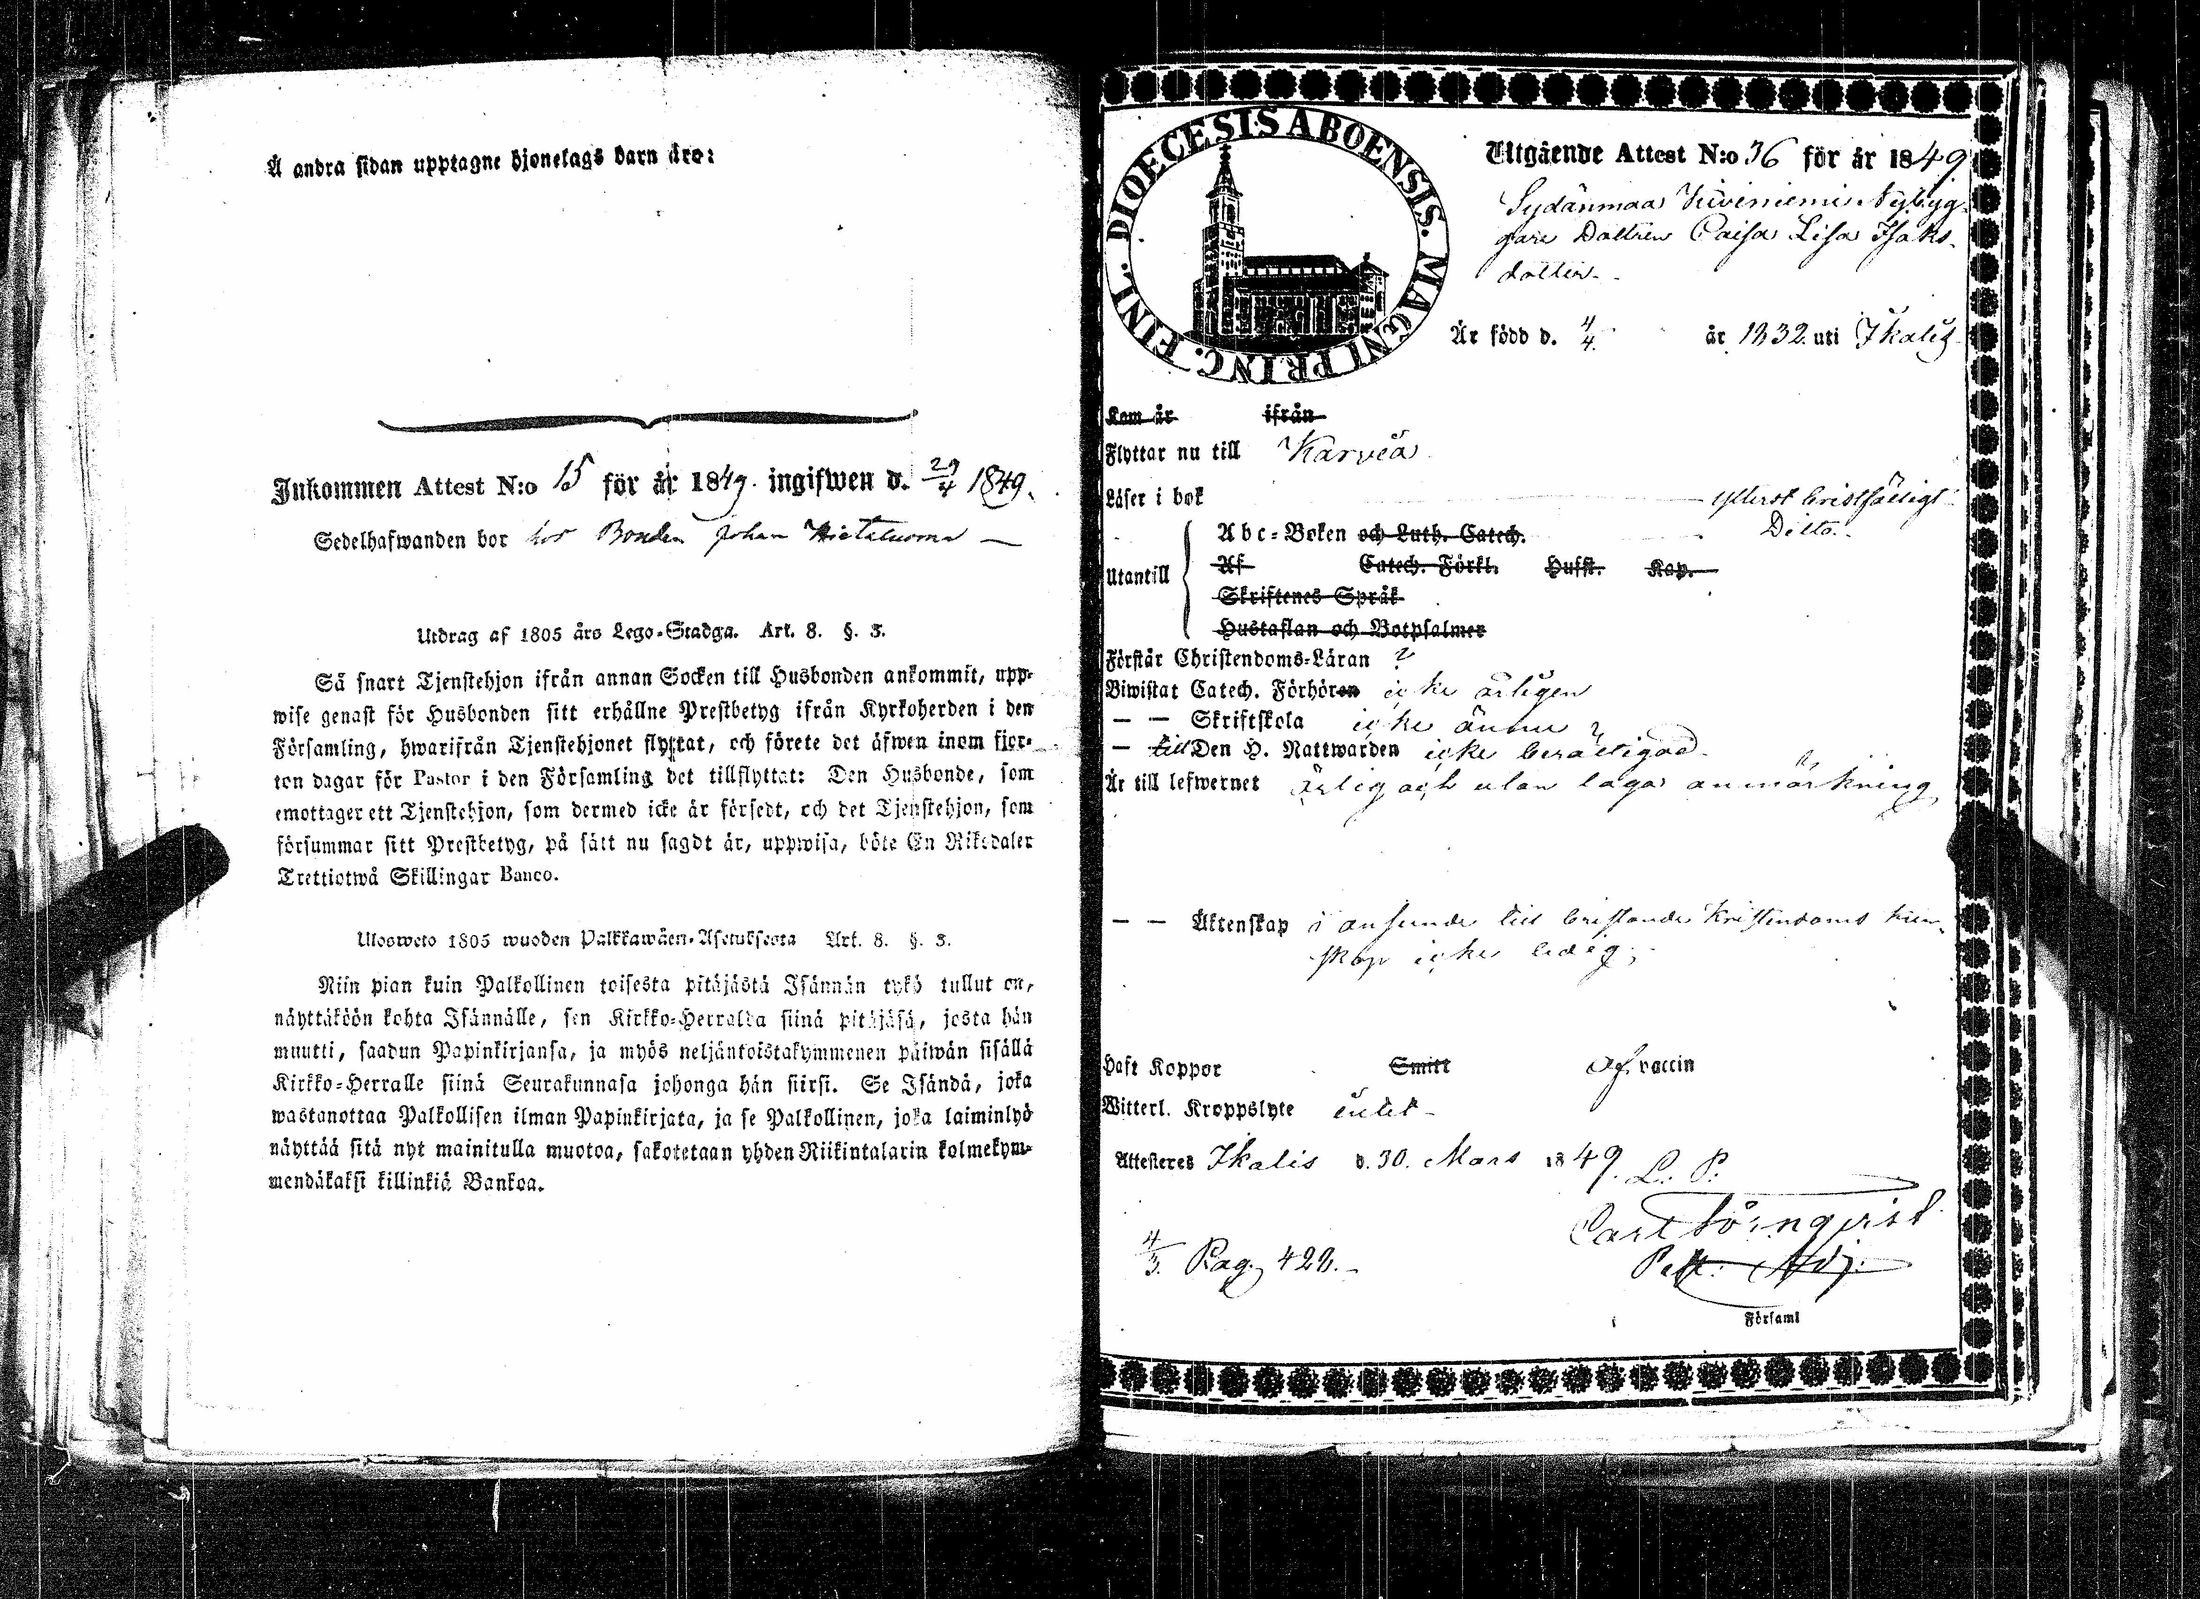 Å andra sidan upptagne hjonelags barn äro:
Inkommen Attest N:o 15 för år 1849. ingifwen d. 29/4 1849.
Sedelhafwanden bor hos Bonden Johan Hietaluoma
Utdrag af 1805 års Lego-Stadga. Art. 8. §. 3.
Så snart Tjenstehjon ifrån annan Socken till Husbonden ankommit, upp-
wise genast för Husbonden sitt erhållne Prestbetyg ifrån Kyrkoherden i den
Församling, hwarifrån Tjenstehjonet flyttat, och förete det äfwen inom fjor-
ton dagar för Pastor i den Församling det tillflyttat: Den Husbonde, som
emottager ett Tjenstehjon, som dermed icke är försedt, och det Tjenstehjon, som
försummar sitt Prestbetyg, på sätt nu sagdt är, uppwisa, böte En Riksdaler
Trettiotwå Skillingar Banco.
Ulosweto 1805 wuoden Palkkawäen-Asetuksesta Art. 8. §. 3.
Niin pian kuin Palkollinen toisesta pitäjästä Isännän tykö tullut on,
näyttäköön kohta Isännälle, sen Kirkko-Herralda siinä pitäjäsä, josta hän
muutti, saadun Papinkirjansa, ja myös neljäntoistakymmenen päiwän sisällä
Kirkko-Herralle siinä Seurakunnasa johonga hän siirsi. Se Isändä, joka
wastanottaa Palkollisen ilman Papinkirjata, ja se Palkollinen, joka laiminlyö
näyttää sitä nyt mainitulla muotoa, sakotetaan yhden Riikintalarin kolmekym-
mendäkaksi killinkiä Bankoa.
DIOECESIS ABOENSIS. MAGNI PRINC. FINL.
Utgående Attest N:o 36 för år 1849
Sydänmaa Kiviniemi Nybyg-
gare Dottren Caisa Lisa Isaks-
dotter.
Är född d. 4/4. år 1832. uti Ikalis
Kom år ifrån
Flyttar nu till Karvia
Läser i bok ytterst bristfälligt
Abc-Boken och Luth. Catech. Ditto.
Utantill
Af Catech. Förkl. Hufst. Kap.
Skriftenes Språk
Hustaflan och Botpsalmer
Förstår Christendoms-Läran ?
Biwistat Catech. Förhören icke årligen
— — Skriftskola icke ännu
— till Den H. Nattwarden icke berättigad.
Är till lefwernet ärlig och utan laga anmärkning
— — Äktenskap i anseende till bristande Kristendoms kun-
skap icke ledig.
Haft Koppor Smitt af vaccin
Witterl. Kroppslyte intet
Attesteras Ikalis d. 30. Mars 1849. L. P.
Carl Törnqvist
Past. Adj.
4/3. Pag. 422.
Församl